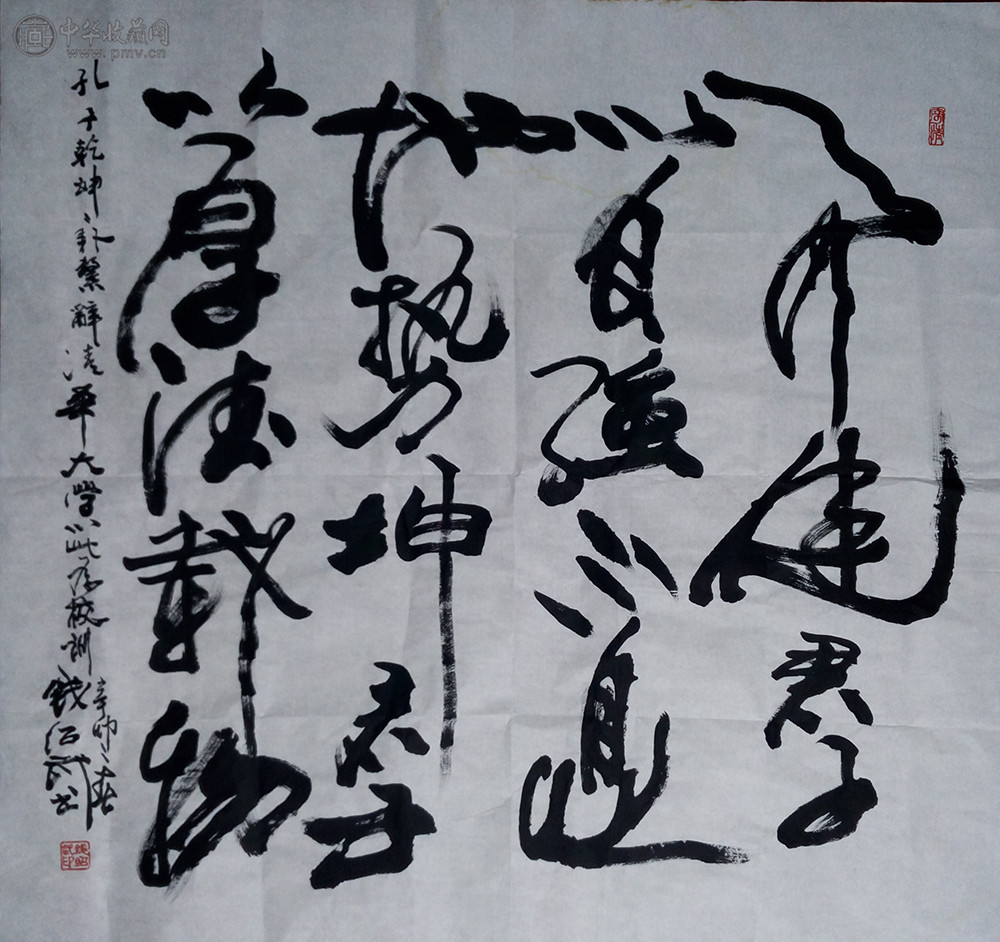 中华收藏网
www.pmv.cn
天行健君子
以自强不息
地势坤君子
以厚德載物
孔子乾坤之卦繫辭清華大學以此为校训
辛卯之春
钱绍武书